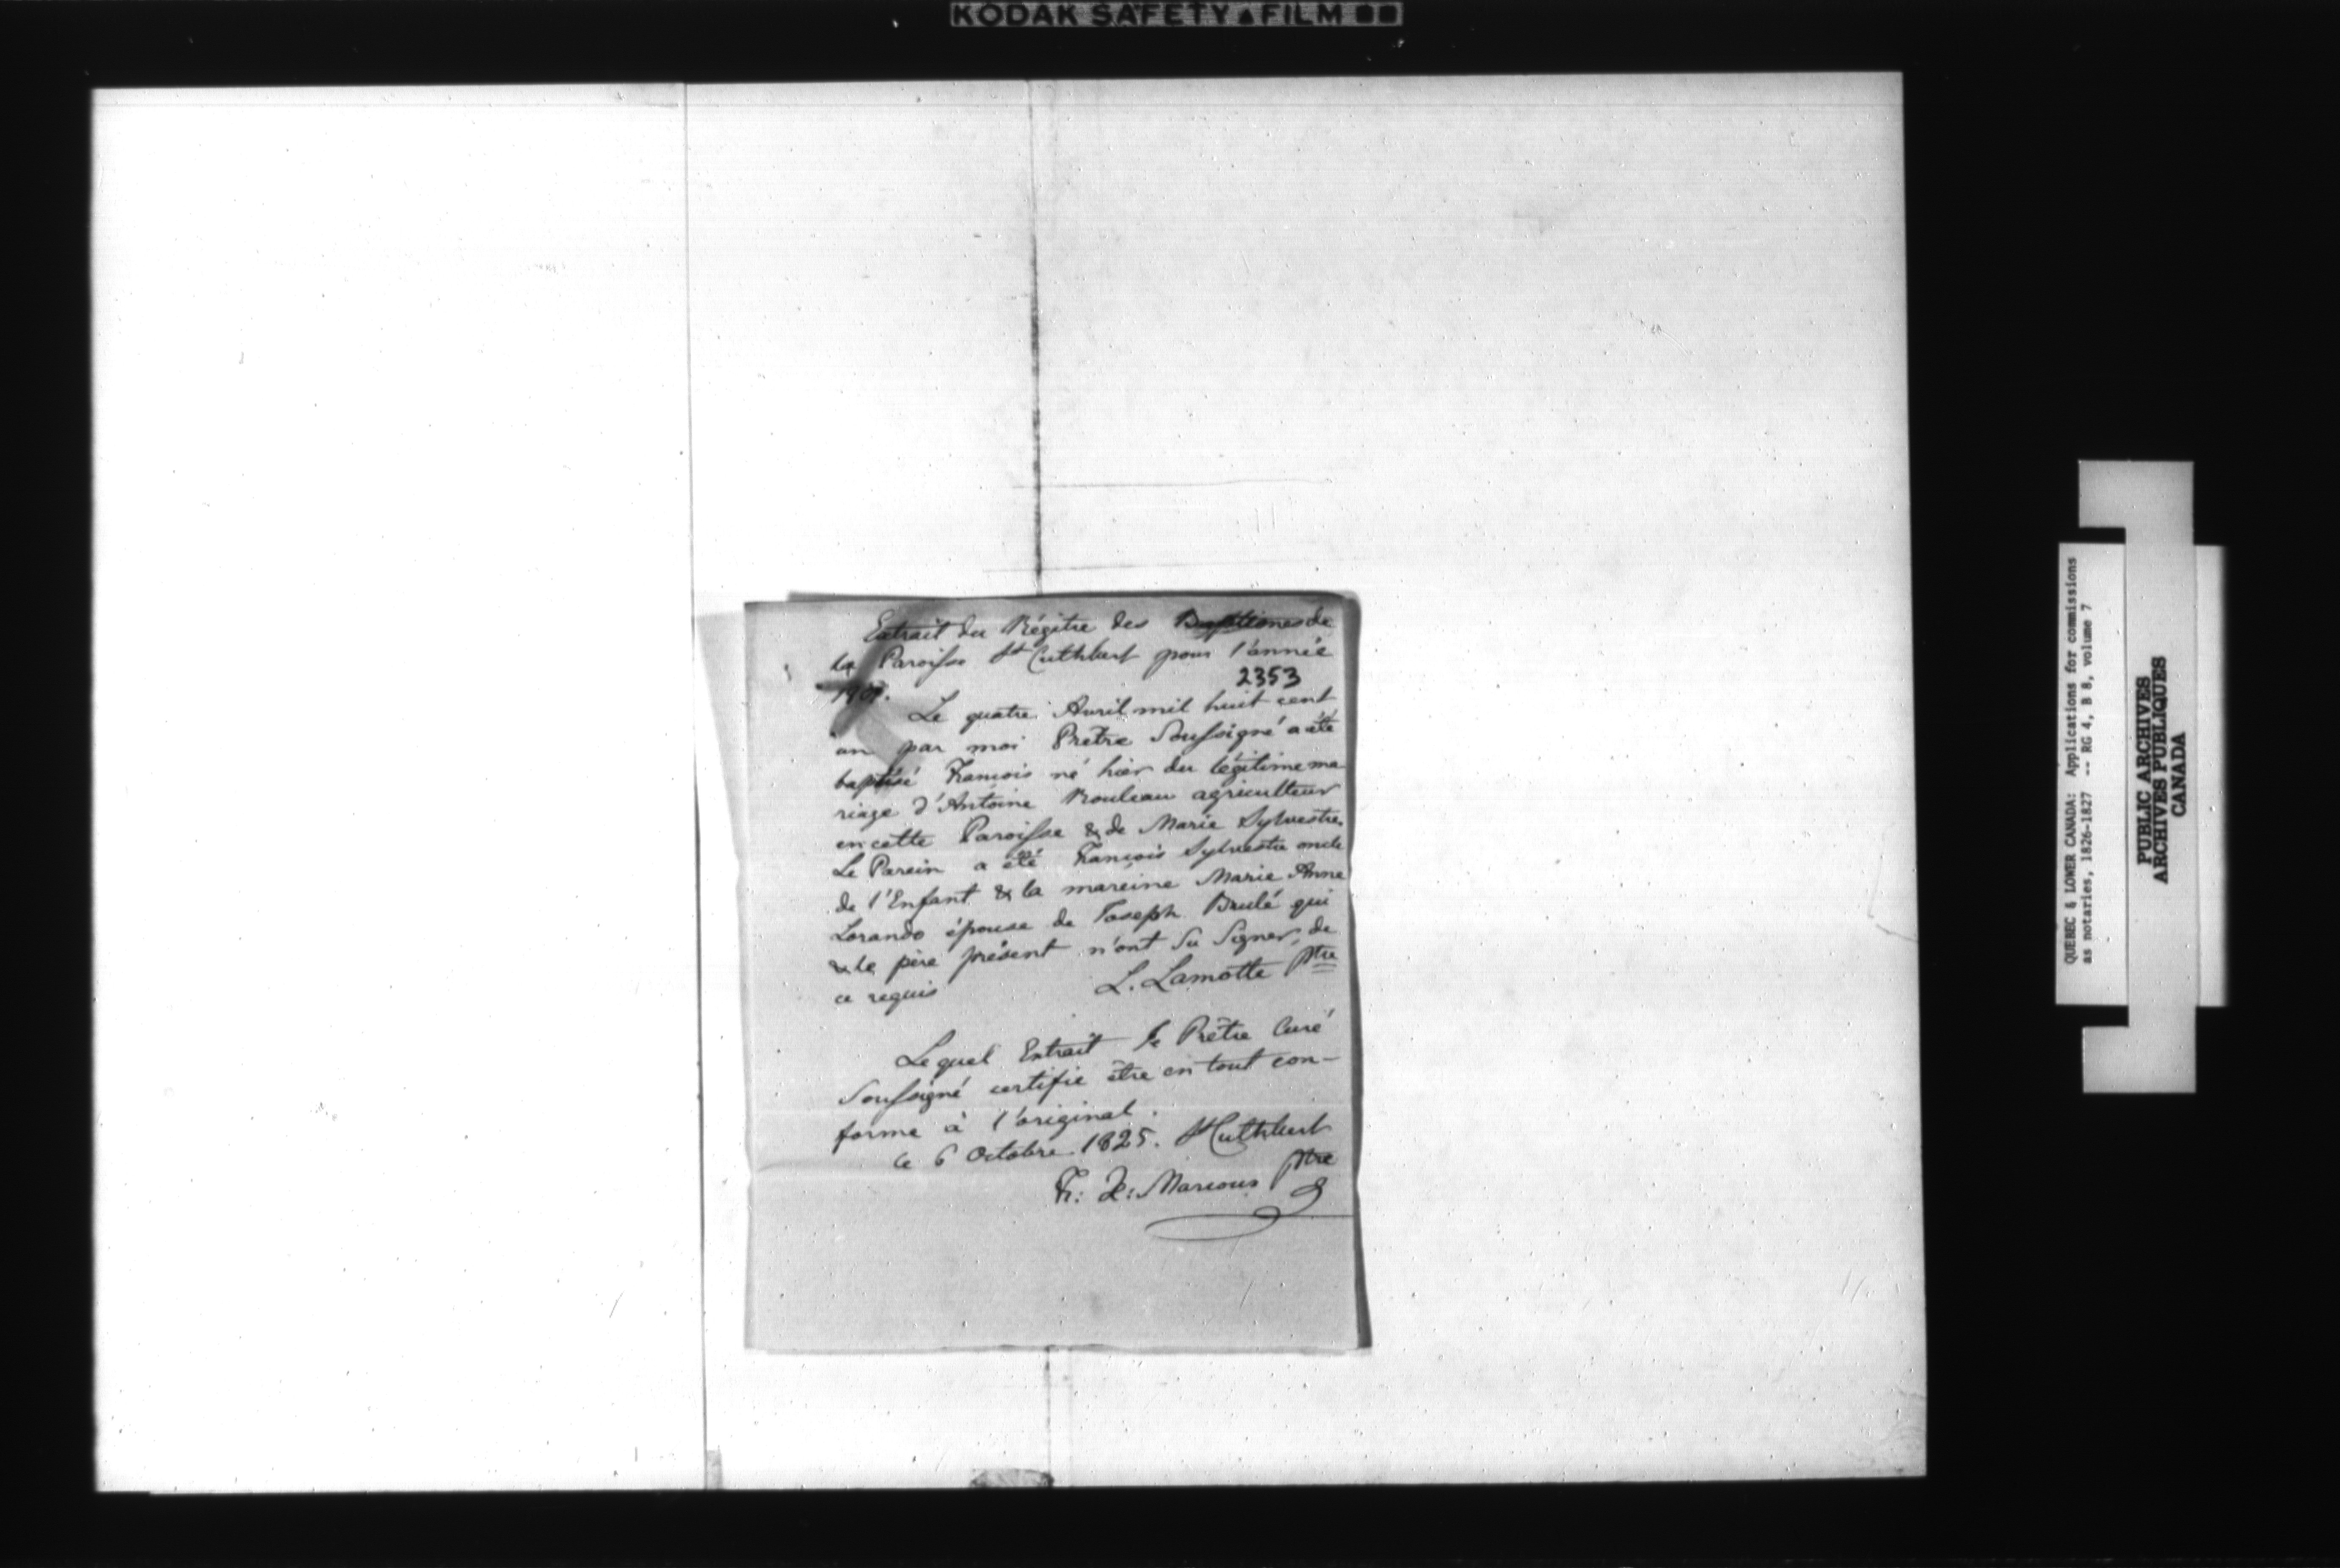 KODAK SAFETY FILM
Extrait du Régitre des Baptêmes de
la Paroisse St Cuthbert pour l'année
2353
Le quatre Avril mil huit cent
un par moi Prêtre Soussigné a été
baptisé François né hier du légitime ma
riage d'Antoine Rouleau agriculteur
en cette Paroisse & de Marie Sylvestre.
Le Parein a été François Sylvestre oncle
de l'Enfant & la mareine Marie Anne
Lorando épouse de Joseph Brulé qui
& le père présent n'ont Su Signer, de
ce requis
L. Lamotte Ptre
Lequel Extrait le Prêtre Curé
Soussigné certifie être en tout con-
forme à l'original.
Ce 6 Octobre 1825. St Cuthbert
Fr: X: Marcoux Ptre
QUEBEC & LOWER CANADA: Applications for commissions
as notaries, 1826-1827 -- RG 4, B 8, volume 7
PUBLIC ARCHIVES
ARCHIVES PUBLIQUES
CANADA